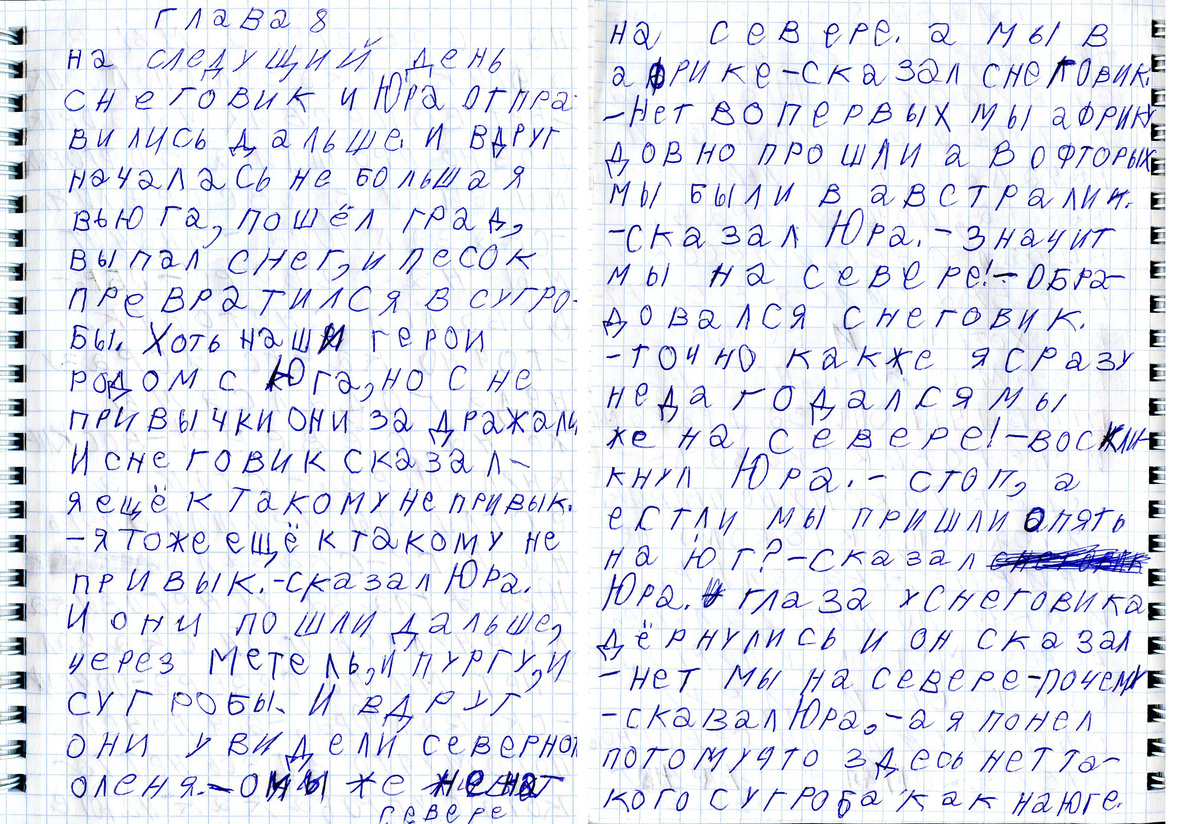 глава 8
на следущий день
снеговик и Юра отпра-
вились дальше. и вдруг
началась не большая
вьюга, пошёл град,
выпал снег, и песок
превратился в сугро-
бы. Хоть наши герои
родом с Юга, но с не
привычки они за дражали
И снеговик сказал-
я ещё к такому не привык.
-я тоже ещё к такому не
привык.-сказал Юра.
И они пошли дальше,
через метель, и пургу, и
сугробы. И вдруг
они увидели северног
оленя.- мы же
севере
на севере. а мы в
африке-сказал снеговик.
-Нет во первых мы африку
довно прошли а в офторых
мы были в австралии.
-сказал Юра.-значит
мы на севере!-обра-
довался снеговик.
-точно какже я сразу
недагодался мы
же на севере!-воскли-
кнул Юра.- стоп, а
естли мы пришли опять
на юг?-сказал
Юра. глаза у снеговика
дёрнулись и он сказал
-нет мы на севере-почему
-сказал Юра.-а я понел
потомучто здесь нет та-
кого сугроба как на юге.